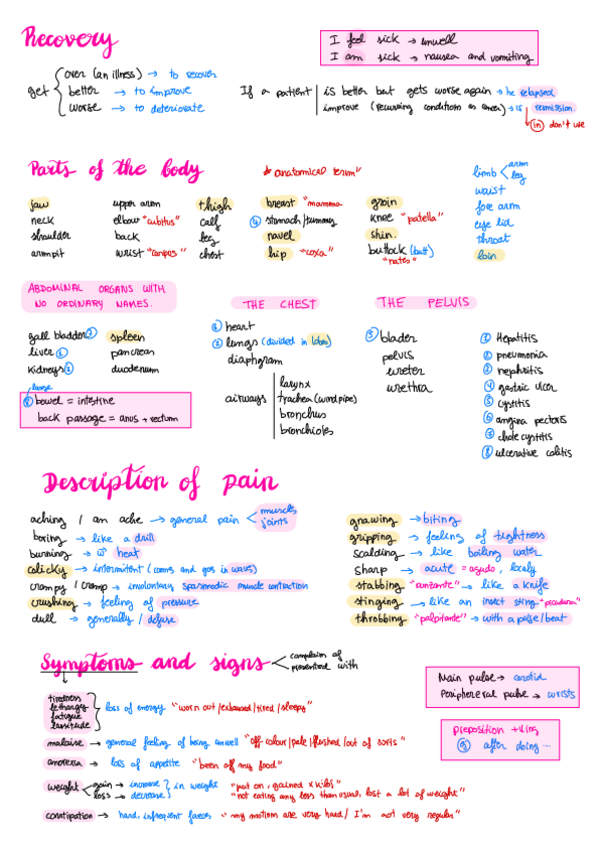 Recovery
I feel sick → unwell
I am sick → nausea and vomiting
get
over (an illness) → to recover
better → to improve
worse → to deteriorate
If a patient
is better but gets worse again → he relapsed
improve (recurring conditions as cancer) → is remission.
(in) don't use
Parts of the body
* anatomical term"
jaw
neck
shoulder
armpit
upper arm
elbow "cubitus"
back
wrist "carpus"
thigh
calf
leg
chest
breast "mamma
④ stomach/tummy
navel
hip "coxa"
groin
knee "patella"
shin.
buttock (butt)
"nates"
limb
arm
leg
waist
fore arm
eye lid
throat
loin
ABDOMINAL ORGANS WITH
NO ORDINARY NAMES.
gall bladder ⑦
liver ①
kidneys ③
spleen
pancreas
duodenum
large
⑧ bowel = intestine
back passage = anus + rectum
THE CHEST
⑥ heart
② lungs (divided in lobes)
diaphragm
airways
larynx
trachea (windpipe)
bronchus
bronchioles
THE PELVIS
⑤ blader
pelvis
ureter
urethra
① Hepatitis
② pneumonia
③ nephritis
④ gastric ulcer
⑤ cystitis
⑥ angina pectoris
⑦ chole cystitis
⑧ ulcerative colitis
Description of pain
aching / an ache → general pain
muscles
joints
boring → like a drill
burning → heat
colicky → intermitent (comes and goes in waves)
crampy / cramp → involuntary spasmodic muscle contraction
crushing → feeling of pressure
dull → generally / defuse
gnawing → biting
gripping → feeling of tightness
scalding → like boiling water
sharp → acute = agudo, localy
stabbing "punzante" → like a knife
stinging → like an insect sting "picadura"
throbbing "palpitante" → with a pulse/beat
Symptoms and signs
complain of
presented with
tiredness
lethargy
fatigue
lassitude
loss of energy "worn out/exhaused/tired/sleepy"
malaise → general feeling of being unwell "off-colour/pale/flushed/out of sorts"
anorexia → loss of appetite "been off my food"
weight
gain → increase
loss → decrease
in weight
"put on, gained x kilos"
"not eating any less than usual, lost a lot of weight"
constipation → hard, infrequent faeces "my motions are very hard/ I'm not very regular"
Main pulse → carotid
Peripheral pulse → wrists
preposition + ing
after doing ...